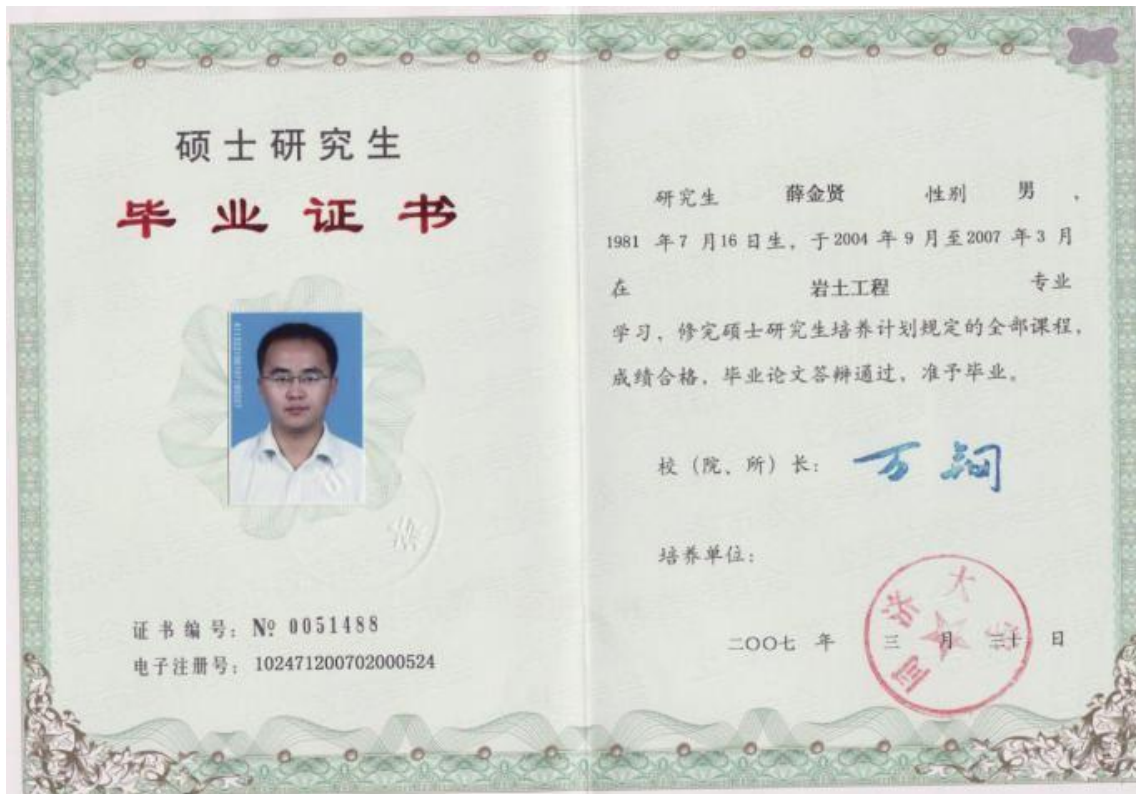 硕士研究生
毕业证书
证书编号: № 0051488
电子注册号: 102471200702000524
研究生 薛金贤 性别 男，
1981 年 7 月 16 日生，于 2004 年 9 月至 2007 年 3 月
在 岩土工程 专业
学习，修完硕士研究生培养计划规定的全部课程，
成绩合格，毕业论文答辩通过，准予毕业。
校（院、所）长: 万钢
培养单位:
同济大学
二〇〇七 年 三 月 三十 日